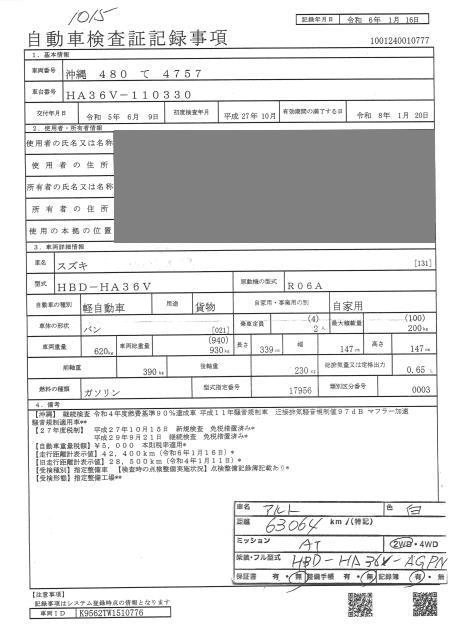 1015
記録年月日 令和 6年 1月 16日
自動車検査証記録事項
1001240010777
1. 基本情報
車両番号 沖縄 480 て 4757
車台番号 HA36V-110330
交付年月日 令和 5年 6月 9日 初度検査年月 平成 27年 10月 有効期間の満了する日 令和 8年 1月 20日
2. 使用者・所有者情報
使用者の氏名又は名称
使用者の住所
所有者の氏名又は名称
所有者の住所
使用の本拠の位置
3. 車両詳細情報
車名 スズキ [131]
型式 HBD-HA36V 原動機の型式 R06A
自動車の種別 軽自動車 用途 貨物 自家用・事業用の別 自家用
車体の形状 バン [021] 乗車定員 (4) 2人 最大積載量 (100) 200kg
車両重量 620kg 車両総重量 (940) 930kg 長さ 339cm 幅 147cm 高さ 147cm
前軸重 390kg 後軸重 230kg 総排気量又は定格出力 0.65 L
燃料の種類 ガソリン 型式指定番号 17956 類別区分番号 0003
4. 備考
【沖縄】 継続検査 令和4年度燃費基準90%達成車 平成11年騒音規制車 近接排気騒音規制値97dB マフラー加速
騒音規制適用車**
【27年度税制】 平成27年10月15日 新規検査 免税措置済み*
平成29年9月21日 継続検査 免税措置済み*
【自動車重量税額】¥5,000 本則税率適用*
【走行距離計表示値】42,400km(令和6年1月16日)*
【旧走行距離計表示値】28,500km(令和4年1月11日)*
【受検種別】指定整備車 【検査時の点検整備実施状況】点検整備記録簿記載あり*
【受検形態】指定整備工場**
車名 アルト 色 白
距離 63064 km/(特記)
ミッション AT 2WD・4WD
架装・フル型式 HBD-HA36V-AGPN
保証書 有・無 整備手帳 有・無 記録簿 有・無
【注意事項】
記録事項はシステム登録時点の情報となります
車両ID K9562TW1510776